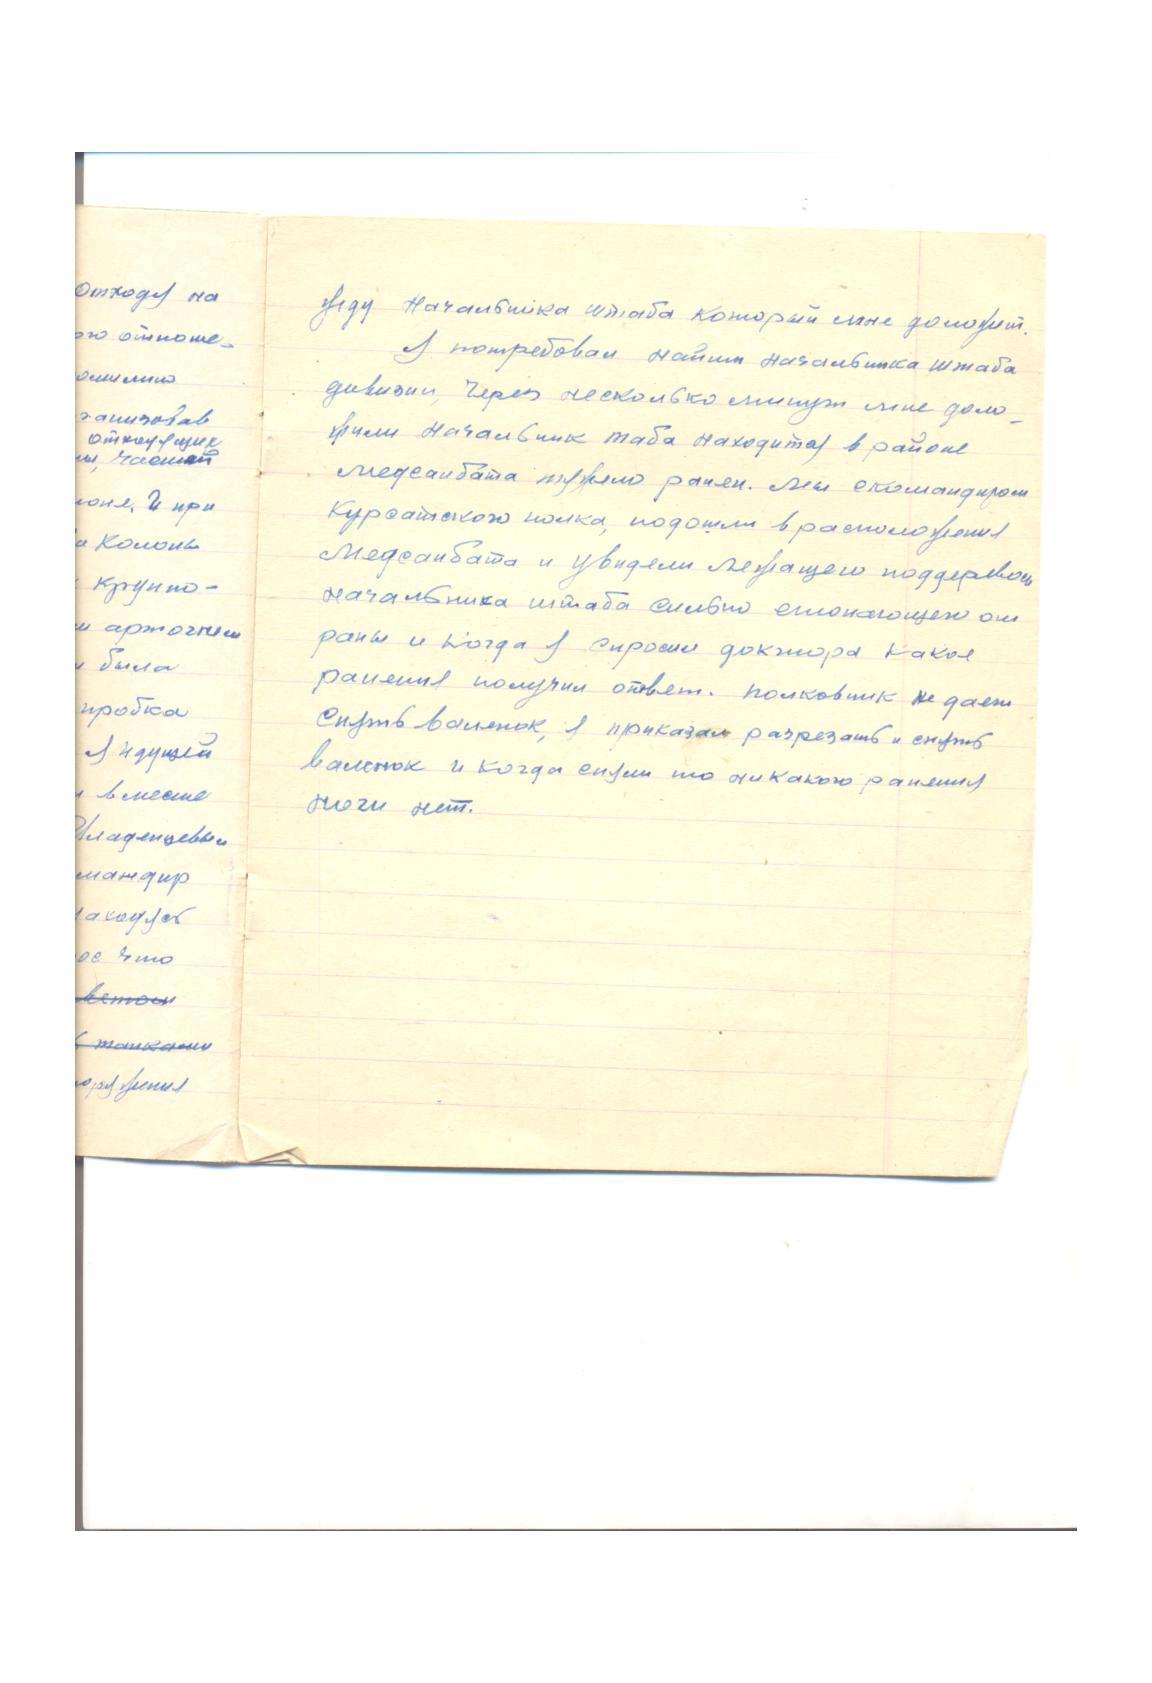 Отходя на
ого отноше-
омилию
ганизовав
отходящих
ми, частей
ионе. И при
а Колоны
крупно-
и артогнем
и была
пробка
я идущей
и вместе
Младенцевым
мандир
находясь
ос что
ветом
танками
оряжения
жду Начальника штаба который мне доложит.
Я потребовал найти начальника штаба
дивизии, Через несколько минут мне доло-
жили начальник таба находится в районе
Медсанбата тяжело ранен. Мы скомандиром
Курсатского полка, подошли врасположения
Медсанбата и увидели лежащего поддеревом
начальника штаба сильно стонающего от
раны и когда я спросил доктора какое
ранения получил ответ. полковник не дает
снять валенок, я приказал разрезать и снять
валенок и когда сняли то никакого ранения
ноги нет.